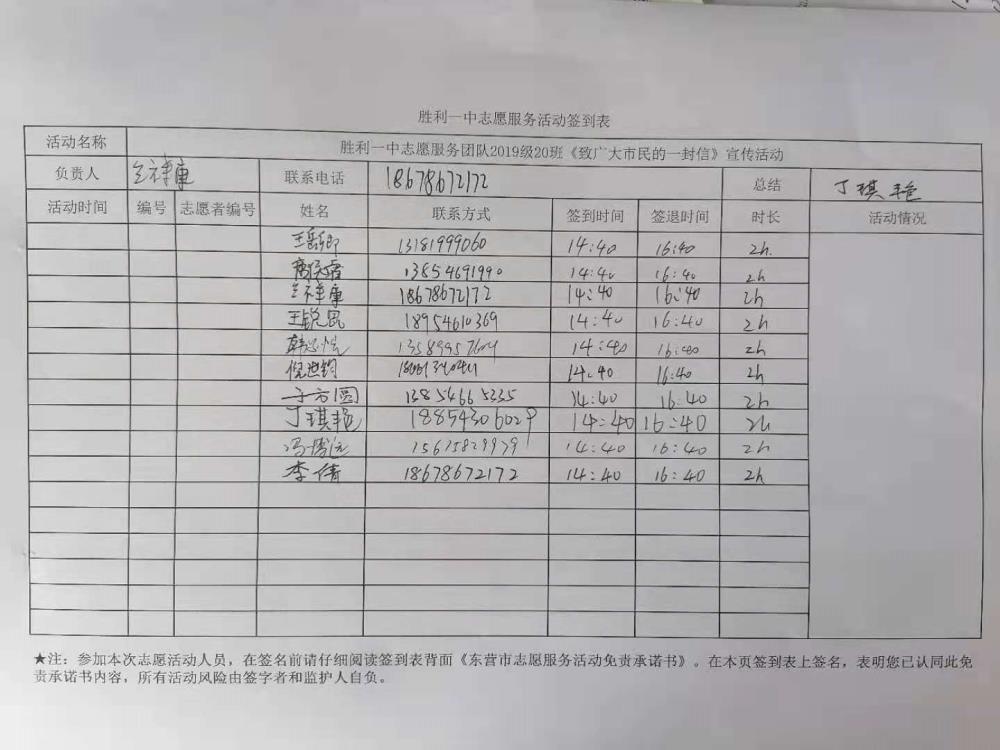 胜利一中志愿服务活动签到表
活动名称 胜利一中志愿服务团队2019级20班《致广大市民的一封信》宣传活动
负责人 联系电话 18678672172 总结 丁琪艳
活动时间 编号 志愿者编号 姓名 联系方式 签到时间 签退时间 时长 活动情况
13181999060 14:40 16:40 2h.
13854691990 14:40 16:40 2h
18678672172 14:40 16:40 2h
王锐昆 18954610369 14:40 16:40 2h
14:40 16:40 2h
倪世钧 14:40 16:40 2h
于方圆 13854665335 14:40 16:40 2h
丁琪艳 18854306029 14:40 16:40 2h
14:40 16:40 2h
李倩 18678672172 14:40 16:40 2h
★注：参加本次志愿活动人员，在签名前请仔细阅读签到表背面《东营市志愿服务活动免责承诺书》。在本页签到表上签名，表明您已认同此免
责承诺书内容，所有活动风险由签字者和监护人自负。